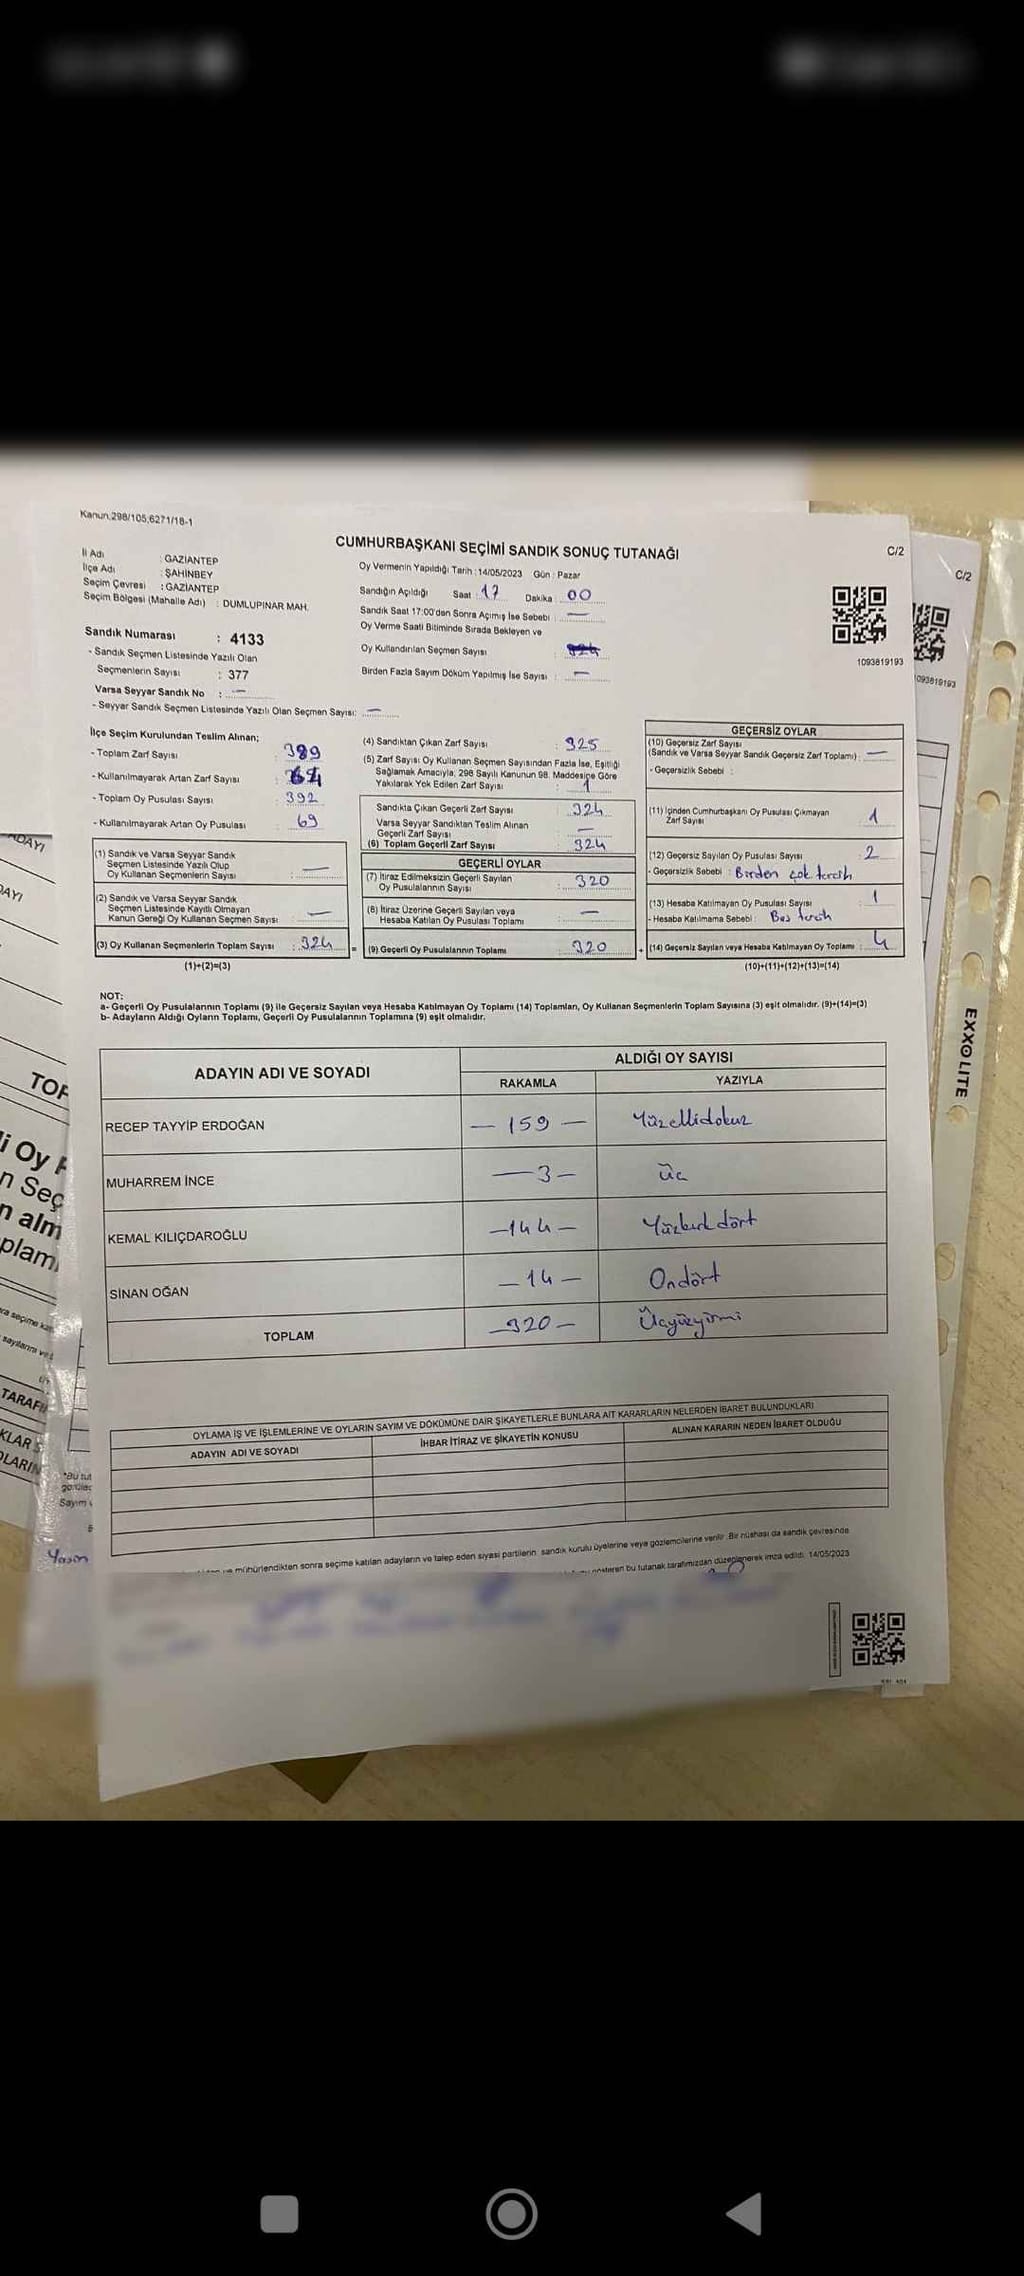 Kanun,298/105;6271/18-1
CUMHURBAŞKANI SEÇİMİ SANDIK SONUÇ TUTANAĞI
C/2
İl Adı : GAZİANTEP
İlçe Adı : ŞAHİNBEY
Seçim Çevresi : GAZİANTEP
Seçim Bölgesi (Mahalle Adı) : DUMLUPINAR MAH.
Sandık Numarası : 4133
- Sandık Seçmen Listesinde Yazılı Olan
Seçmenlerin Sayısı : 377
Varsa Seyyar Sandık No : —
- Seyyar Sandık Seçmen Listesinde Yazılı Olan Seçmen Sayısı: —
Oy Vermenin Yapıldığı Tarih : 14/05/2023 Gün : Pazar
Sandığın Açıldığı Saat : 17 Dakika : 00
Sandık Saat 17:00'den Sonra Açımış İse Sebebi : —
Oy Verme Saati Bitiminde Sırada Bekleyen ve
Oy Kullandırılan Seçmen Sayısı :
Birden Fazla Sayım Döküm Yapılmış İse Sayısı : —
1093819193
İlçe Seçim Kurulundan Teslim Alınan;
- Toplam Zarf Sayısı : 389
- Kullanılmayarak Artan Zarf Sayısı : 64
- Toplam Oy Pusulası Sayısı : 392
- Kullanılmayarak Artan Oy Pusulası : 69
(1) Sandık ve Varsa Seyyar Sandık
Seçmen Listesinde Yazılı Olup
Oy Kullanan Seçmenlerin Sayısı : —
(2) Sandık ve Varsa Seyyar Sandık
Seçmen Listesinde Kayıtlı Olmayan
Kanun Gereği Oy Kullanan Seçmen Sayısı : —
(3) Oy Kullanan Seçmenlerin Toplam Sayısı : 324 =
(1)+(2)=(3)
(4) Sandıktan Çıkan Zarf Sayısı : 325
(5) Zarf Sayısı Oy Kullanan Seçmen Sayısından Fazla İse, Eşitliği
Sağlamak Amacıyla; 298 Sayılı Kanunun 98. Maddesine Göre
Yakılarak Yok Edilen Zarf Sayısı : 1
Sandıkta Çıkan Geçerli Zarf Sayısı : 324
Varsa Seyyar Sandıktan Teslim Alınan
Geçerli Zarf Sayısı : —
(6) Toplam Geçerli Zarf Sayısı : 324
GEÇERLİ OYLAR
(7) İtiraz Edilmeksizin Geçerli Sayılan
Oy Pusulalarının Sayısı : 320
(8) İtiraz Üzerine Geçerli Sayılan veya
Hesaba Katılan Oy Pusulası Toplamı : —
(9) Geçerli Oy Pusulalarının Toplamı : 320 +
GEÇERSİZ OYLAR
(10) Geçersiz Zarf Sayısı
(Sandık ve Varsa Seyyar Sandık Geçersiz Zarf Toplamı) : —
- Geçersizlik Sebebi :
(11) İçinden Cumhurbaşkanı Oy Pusulası Çıkmayan
Zarf Sayısı : 1
(12) Geçersiz Sayılan Oy Pusulası Sayısı : 2
- Geçersizlik Sebebi : Birden çok tercih
(13) Hesaba Katılmayan Oy Pusulası Sayısı : 1
- Hesaba Katılmama Sebebi : Boş tercih
(14) Geçersiz Sayılan veya Hesaba Katılmayan Oy Toplamı : 4
(10)+(11)+(12)+(13)=(14)
NOT:
a- Geçerli Oy Pusulalarının Toplamı (9) ile Geçersiz Sayılan veya Hesaba Katılmayan Oy Toplamı (14) Toplamları, Oy Kullanan Seçmenlerin Toplam Sayısına (3) eşit olmalıdır. (9)+(14)=(3)
b- Adayların Aldığı Oyların Toplamı, Geçerli Oy Pusulalarının Toplamına (9) eşit olmalıdır.
ADAYIN ADI VE SOYADI
ALDIĞI OY SAYISI
RAKAMLA YAZIYLA
RECEP TAYYİP ERDOĞAN — 159 — Yüzellidokuz
MUHARREM İNCE — 3 — Üç
KEMAL KILIÇDAROĞLU — 144 — Yüzkırkdört
SİNAN OĞAN — 14 — Ondört
TOPLAM — 320 — Üçyüzyirmi
OYLAMA İŞ VE İŞLEMLERİNE VE OYLARIN SAYIM VE DÖKÜMÜNE DAİR ŞİKAYETLERLE BUNLARA AİT KARARLARIN NELERDEN İBARET BULUNDUKLARI
ADAYIN ADI VE SOYADI
İHBAR İTİRAZ VE ŞİKAYETİN KONUSU
ALINAN KARARIN NEDEN İBARET OLDUĞU
mühürlendikten sonra seçime katılan adayların ve talep eden siyasi partilerin sandık kurulu üyelerine veya gözlemcilerine verilir. Bir nüshası da sandık çevresinde
gösteren bu tutanak tarafımızdan düzenlenerek imza edildi. 14/05/2023
C/2
093819193
EXXOLITE
ADAYI
TOP
i Oy P
n Seç
n alm
plam
TARAFI
KLAR
OLARIN
Sayım
Yasin